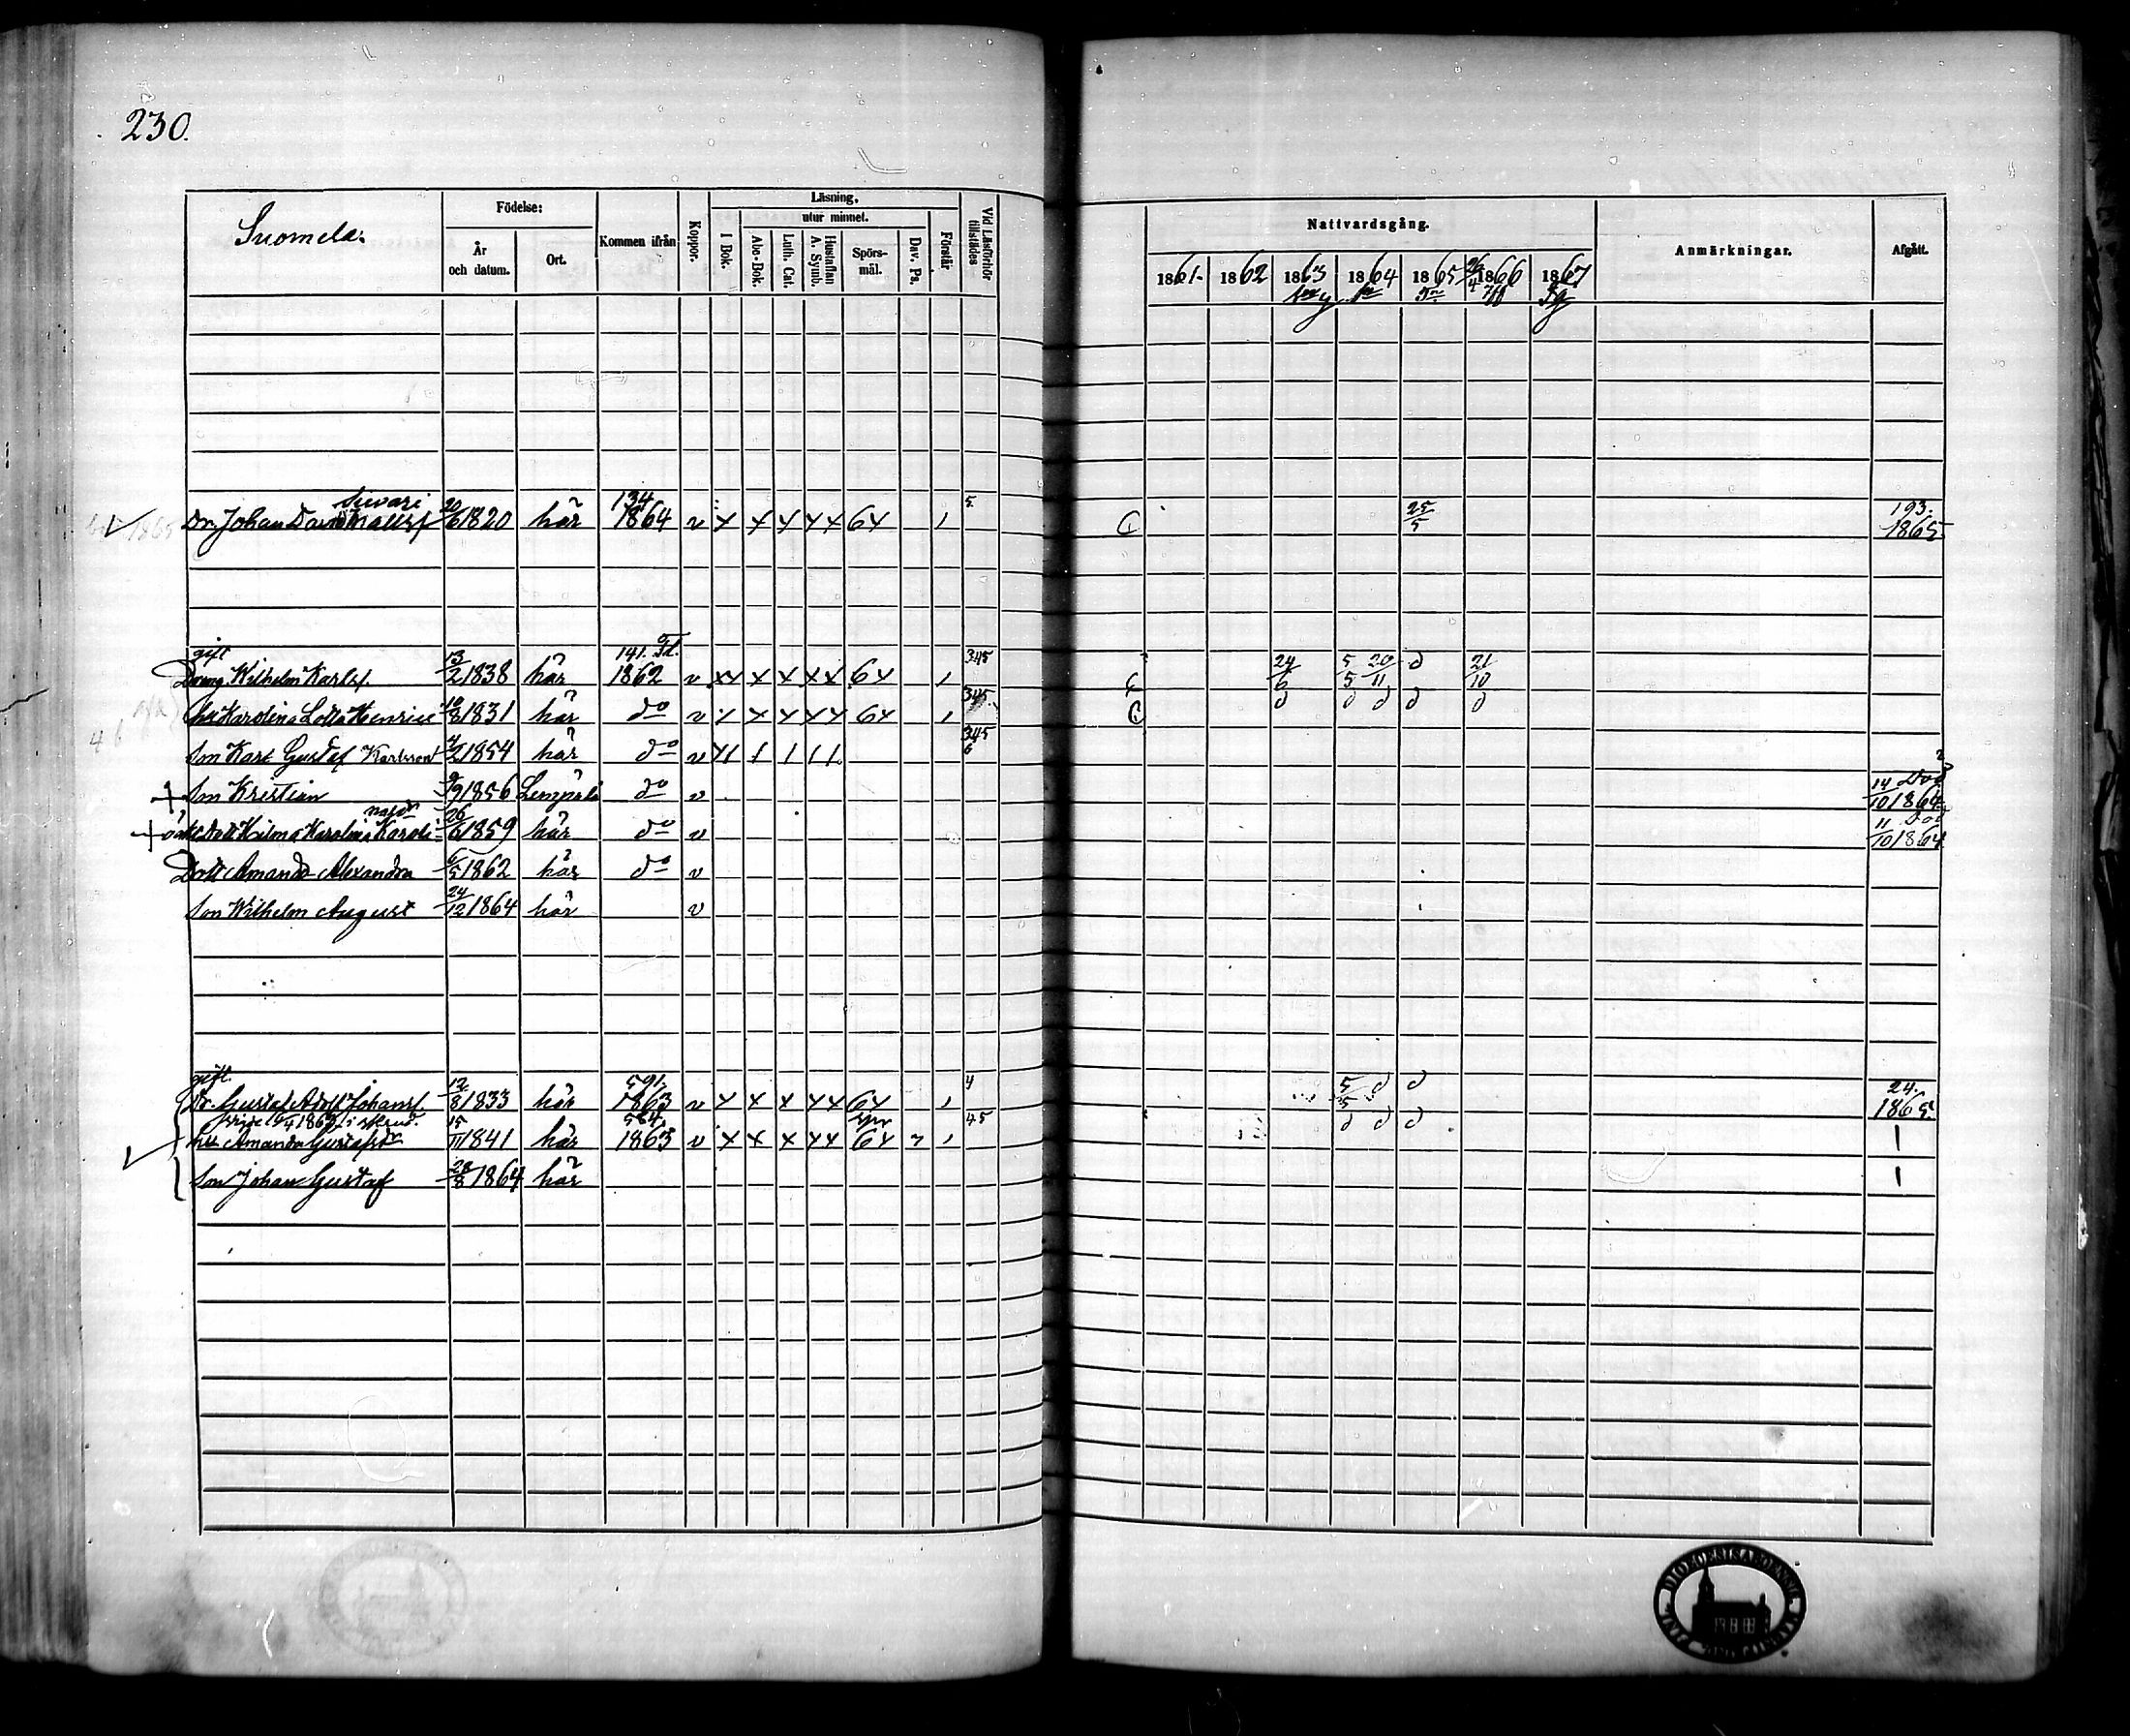 230.
Suomela.
Födelse:
År och datum.
Ort.
Kommen ifrån
Koppor.
Läsning.
utur minnet.
I Bok.
Abc-Bok.
Luth. Cat.
Hustaflan A. Symb.
Spörs-mål.
Dav. Ps.
Förstår
Vid Läsförhör tillstädes
Nattvardsgång.
1861. 1862 1863 1864 1865 1866 1867
Anmärkningar.
Afgått.
134 5.
Dr. Johan 20/6 1820 här 1864 v x x x x x 6x 1 25/5 193. 1865
gift 141. 345
Dreng Wilhelm Karlsf. 13/2 1838 här 1862 v xx x x x x 6x 1 24/6 5/5 20/11 d 21/10
hu Karolina Lotta Henrics 10/8 1831 här do v x x x x x 6x 1 345 d d d d d
Son Karl Gustaf Karlsson 4/2 1854 här do v x1 1 1 1 1 345 6
+ Son Kristian 9/9 1856 Lempälä do v 14/10 1864 Död
+ Dott Hilma Karolina 26/6 1859 här do v 11/10 1864 Död
Dott Amanda Alexandra 6/5 1862 här do v
Son Wilhelm August 24/12 1864 här v
gift. 591. 4
Dr. Gustaf Adolf Johansf. 12/8 1833 här 1863 v x x x x x 6x 1 5/5 d d 24. 1865
584.
hu Amanda Gustafsdr 15/11 1841 här 1863 v x x x x x 6x 1 45 d d d
Son Johan Gustaf 28/8 1864 här